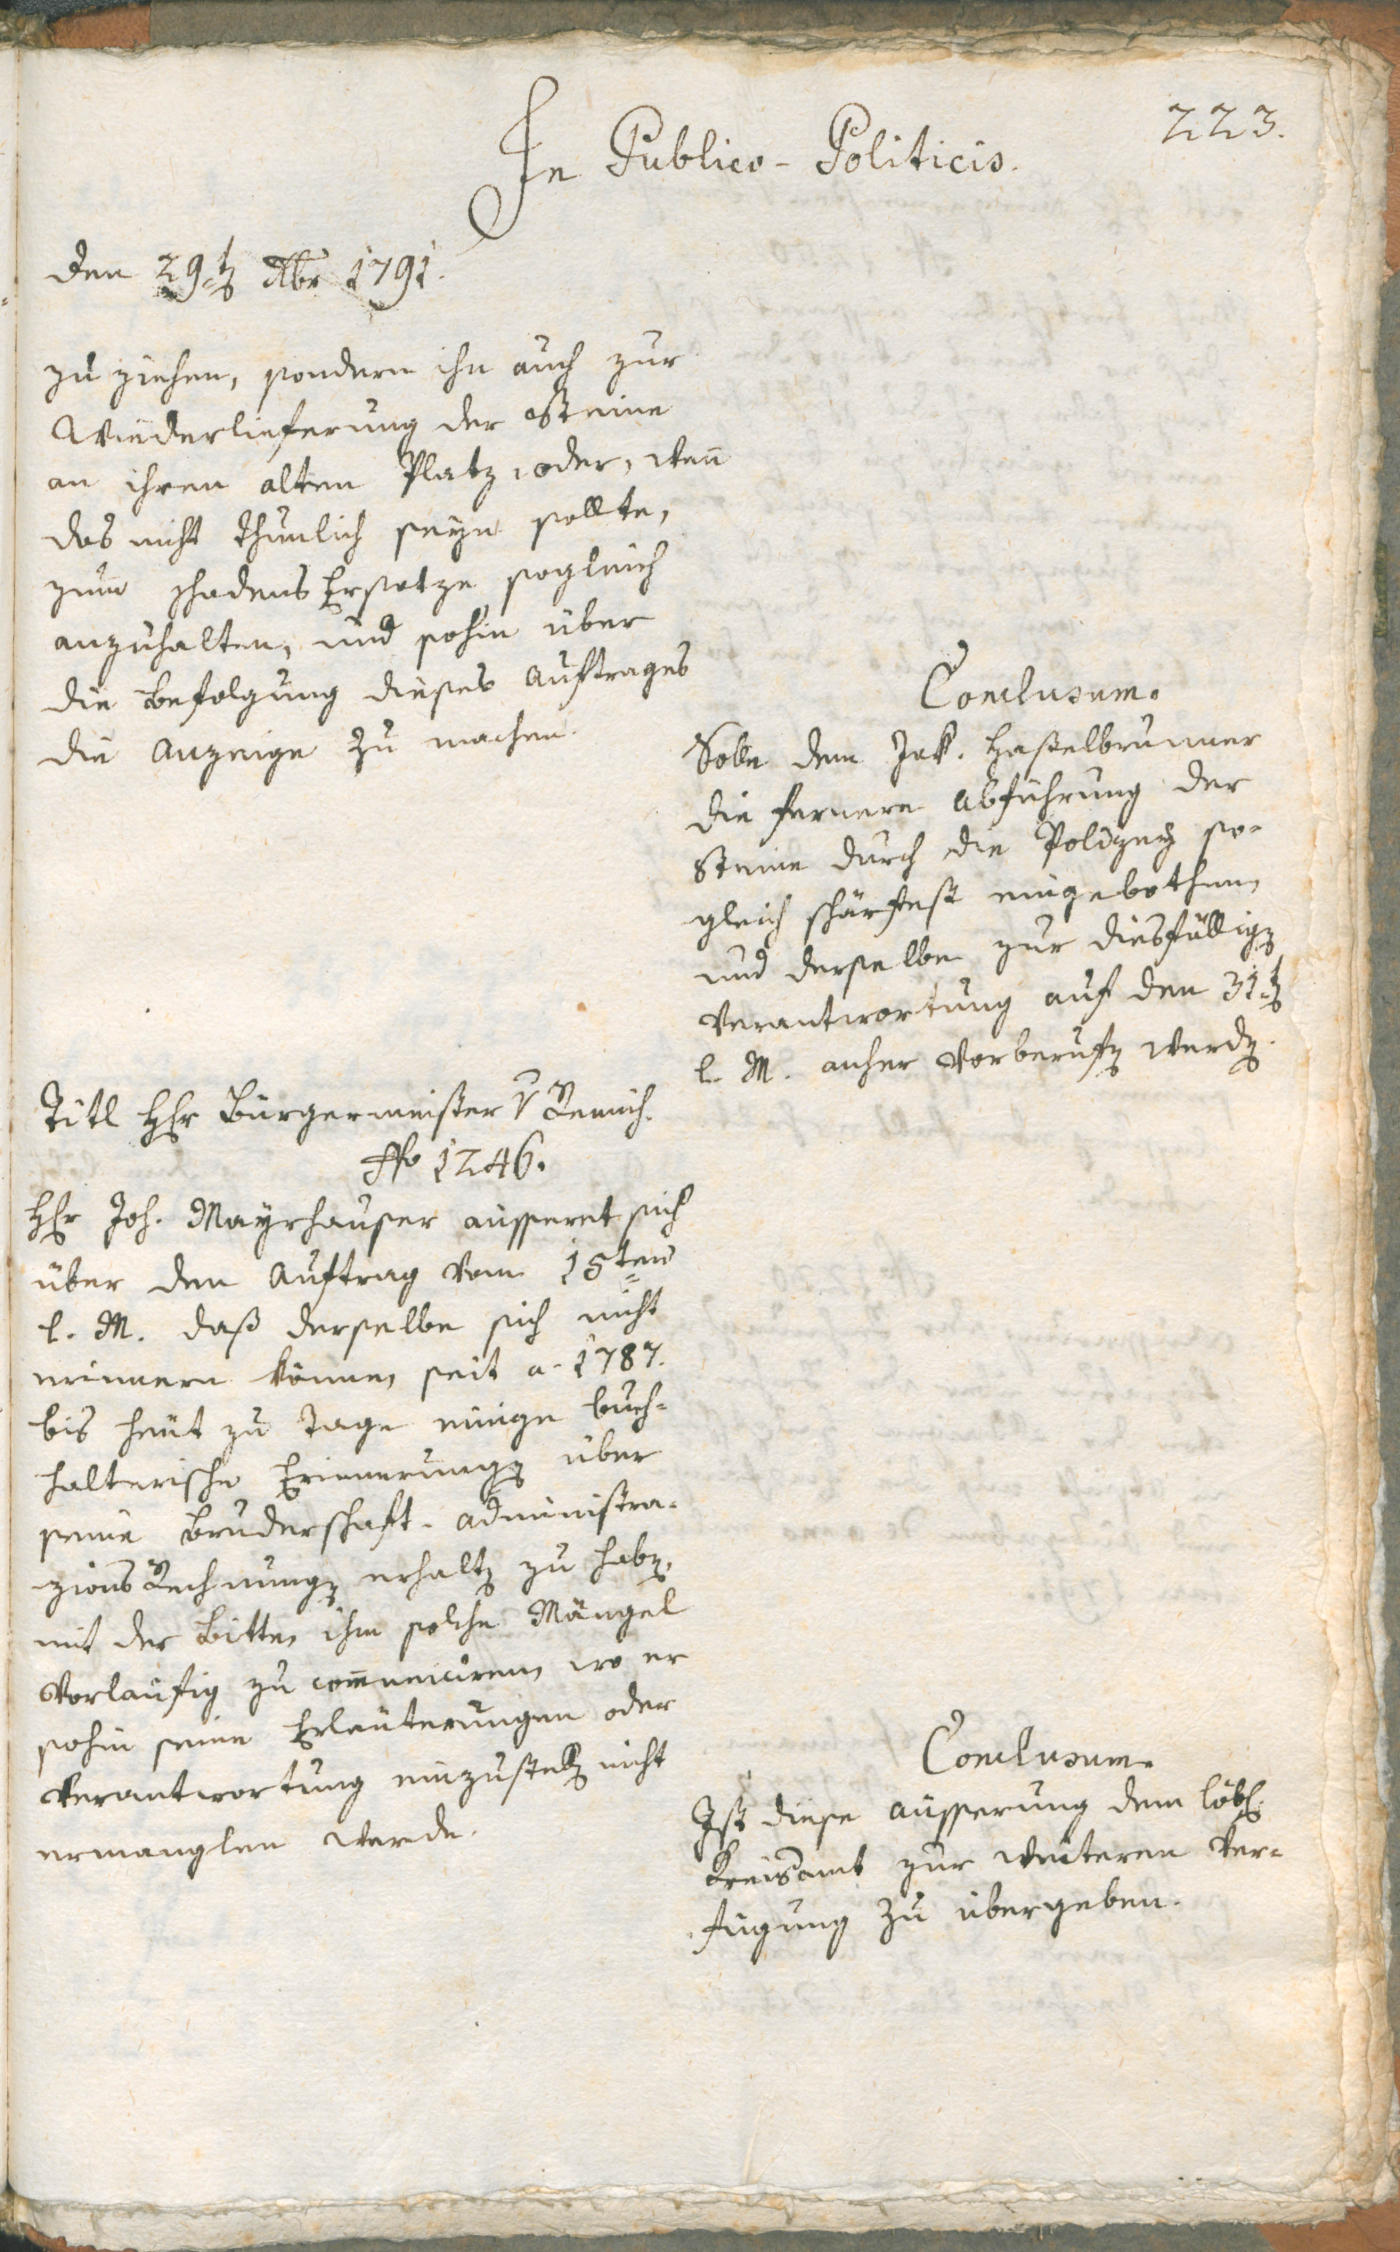 223.
In Publico-Politicis.
den 29t 8br 1791.
zu ziehen, sondern ihn auch zur
Wiederlieferung der Steine
an ihren alten Platz, oder, wen̄
das nicht thunlich seyn sollte,
zum Schadens Ersatze sogleich
anzuhalten, und sohin über
die Befolgung dieses Auftrages
die Anzeige zu machen.
Conclusum.
Solle dem Jak. Hastelbrunner
die fernere Abführung der
Steine durch die Polizey so-
gleich schärfest eingebothen,
und derselbe zur diesfällig
Verantwortung auf den 31t
l. M. anher vorberufen werden.
Titl Hr Bürgermeister v Remich.
No 1246.
Hr Joh. Mayrhauser äusseret sich
über den Auftrag vom 15ten
l. M. daß derselbe sich nicht
erinnern könne, seit a. 1787.
bis heut zu Tage einige buch-
halterische Erinnerungen über
seine Bruderschaft-administra-
zions Rechnungen erhalten zu haben,
mit der Bitte, ihm solche Mängel
vorlaufig zu com̄uniciren, wo er
sohin seine Erläuterungen oder
Verantwortung einzustellen nicht
ermanglen werde.
Conclusum.
Ist diese Äusserung dem löbl.
Kreisamt zur weiteren Ver-
fügung zu übergeben.